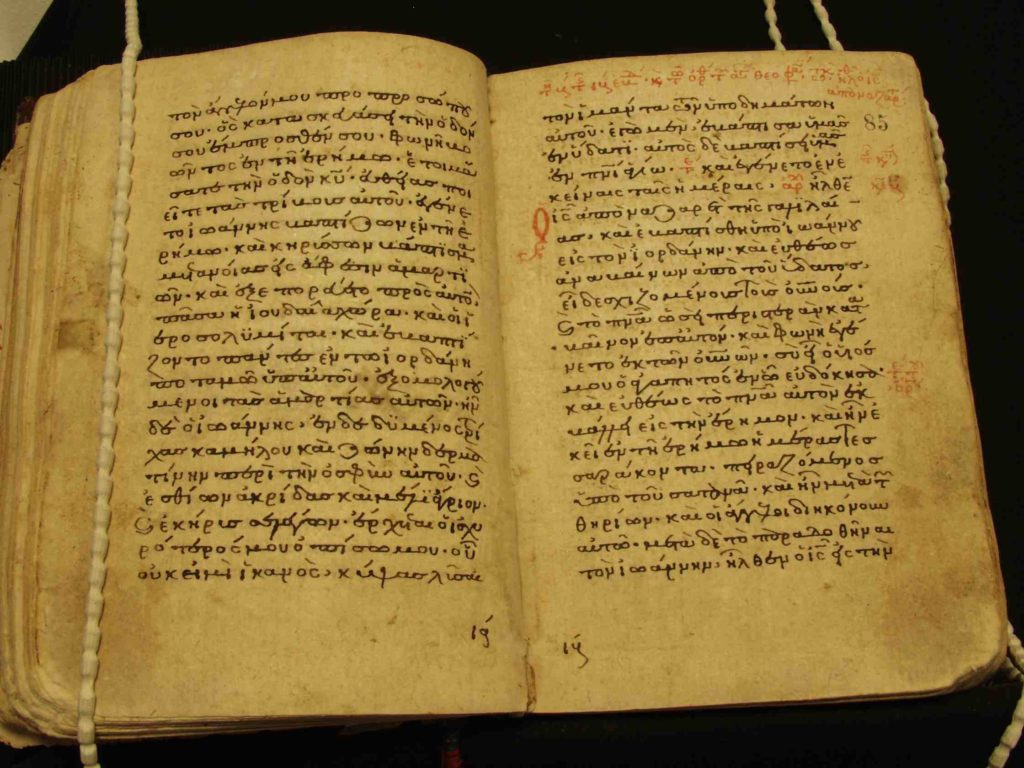 τὸν ἄγγελόν μου πρὸ προσώπου
σου· ὃς κατασκευάσει τὴν ὁδόν
σου ἔμπροσθέν σου· φωνὴ βο
ῶντος ἐν τῇ ἐρήμω· ἑτοιμά
σατε τὴν ὁδὸν κυ· εὐθείας ποι
εῖτε τὰς τρίβους αὐτοῦ· ἐγένε
το ἰωάννης βαπτίζων ἐν τῇ ἐ
ρήμω· καὶ κηρύσσων βάπτισμα
μετανοίας εἰς ἄφεσιν ἁμαρτι
ῶν· καὶ ἐξεπορεύετο πρὸς αὐτὸν
πᾶσα ἡ ἰουδαία χώρα· καὶ οἱ ἱ
εροσολυμίται· καὶ ἐβαπτί
ζοντο πάντες ἐν τῶ ἰορδάνη
ποταμῶ ὑπ αὐτοῦ· ἐξομολογού
μενοι τὰς ἁμαρτίας αὐτῶν· ἦν
δὲ ὁ ἰωάννης, ἐνδεδυμένος τρί
χας καμήλου καὶ ζώνην δερμα
τίνην περὶ τὴν ὀσφὺν αὐτοῦ· ϗ
ἐσθίων ἀκρίδας καὶ μέλι ἄγριον·
ϗ ἐκήρυσσε λέγων· ἔρχεται ὁ ἰσχυ
ρότερός μου ὀπίσω μου· οὗ
οὐκ εἰμὶ ἱκανὸς, κύψας λῦσαι
τὸν ἱμάντα τῶν ὑποδημάτων
αὐτοῦ· ἐγὼ μὲν, ἐβάπτισα ὑμᾶς
ἐν ὕδατι· αὐτὸς δὲ βαπτίσει ὑμᾶς
ἐν πνι ἁγίω· καὶ ἐγένετο ἐν ἐ
κείναις ταῖς ἡμέραις, ἦλθεν
ὁ ις ἀπὸ ναζαρὲτ τῆς γαλιλαί
ας· καὶ ἐβαπτίσθη ὑπὸ ἰωάννου
εἰς τὸν ἰορδάνην· καὶ εὐθέως
ἀναβαίνων ἀπὸ τοῦ ὕδατος,
εἶδε σχιζομένους τοὺς οὐνούς·
ϗ τὸ πνα ὡσεὶ περιστερὰν κατα
βαῖνον ἐπ αὐτόν· καὶ φωνὴ ἐγέ
νετο ἐκ τῶν οὐνῶν· σὺ εἶ ὁ υἱός
μου ὁ ἀγαπητὸς ἐν ᾧ εὐδόκησα·
καὶ εὐθέως τὸ πνα αὐτὸν ἐκ
βάλλει εἰς τὴν ἔρημον· καὶ ἦν ἐ
κεῖ ἐν τῇ ἐρήμω ἡμέρας τεσ
σαράκοντα· πειραζόμενος
ὑπὸ τοῦ σατανᾶ· καὶ ἦν μετὰ τῶν
θηρίων· καὶ οἱ ἄγγελοι διηκόνουν
αὐτῶ· μετὰ δὲ τὸ παραδοθῆναι
τὸν ἰωάννην, ἦλθεν ὁ ις εἰς τὴν
85